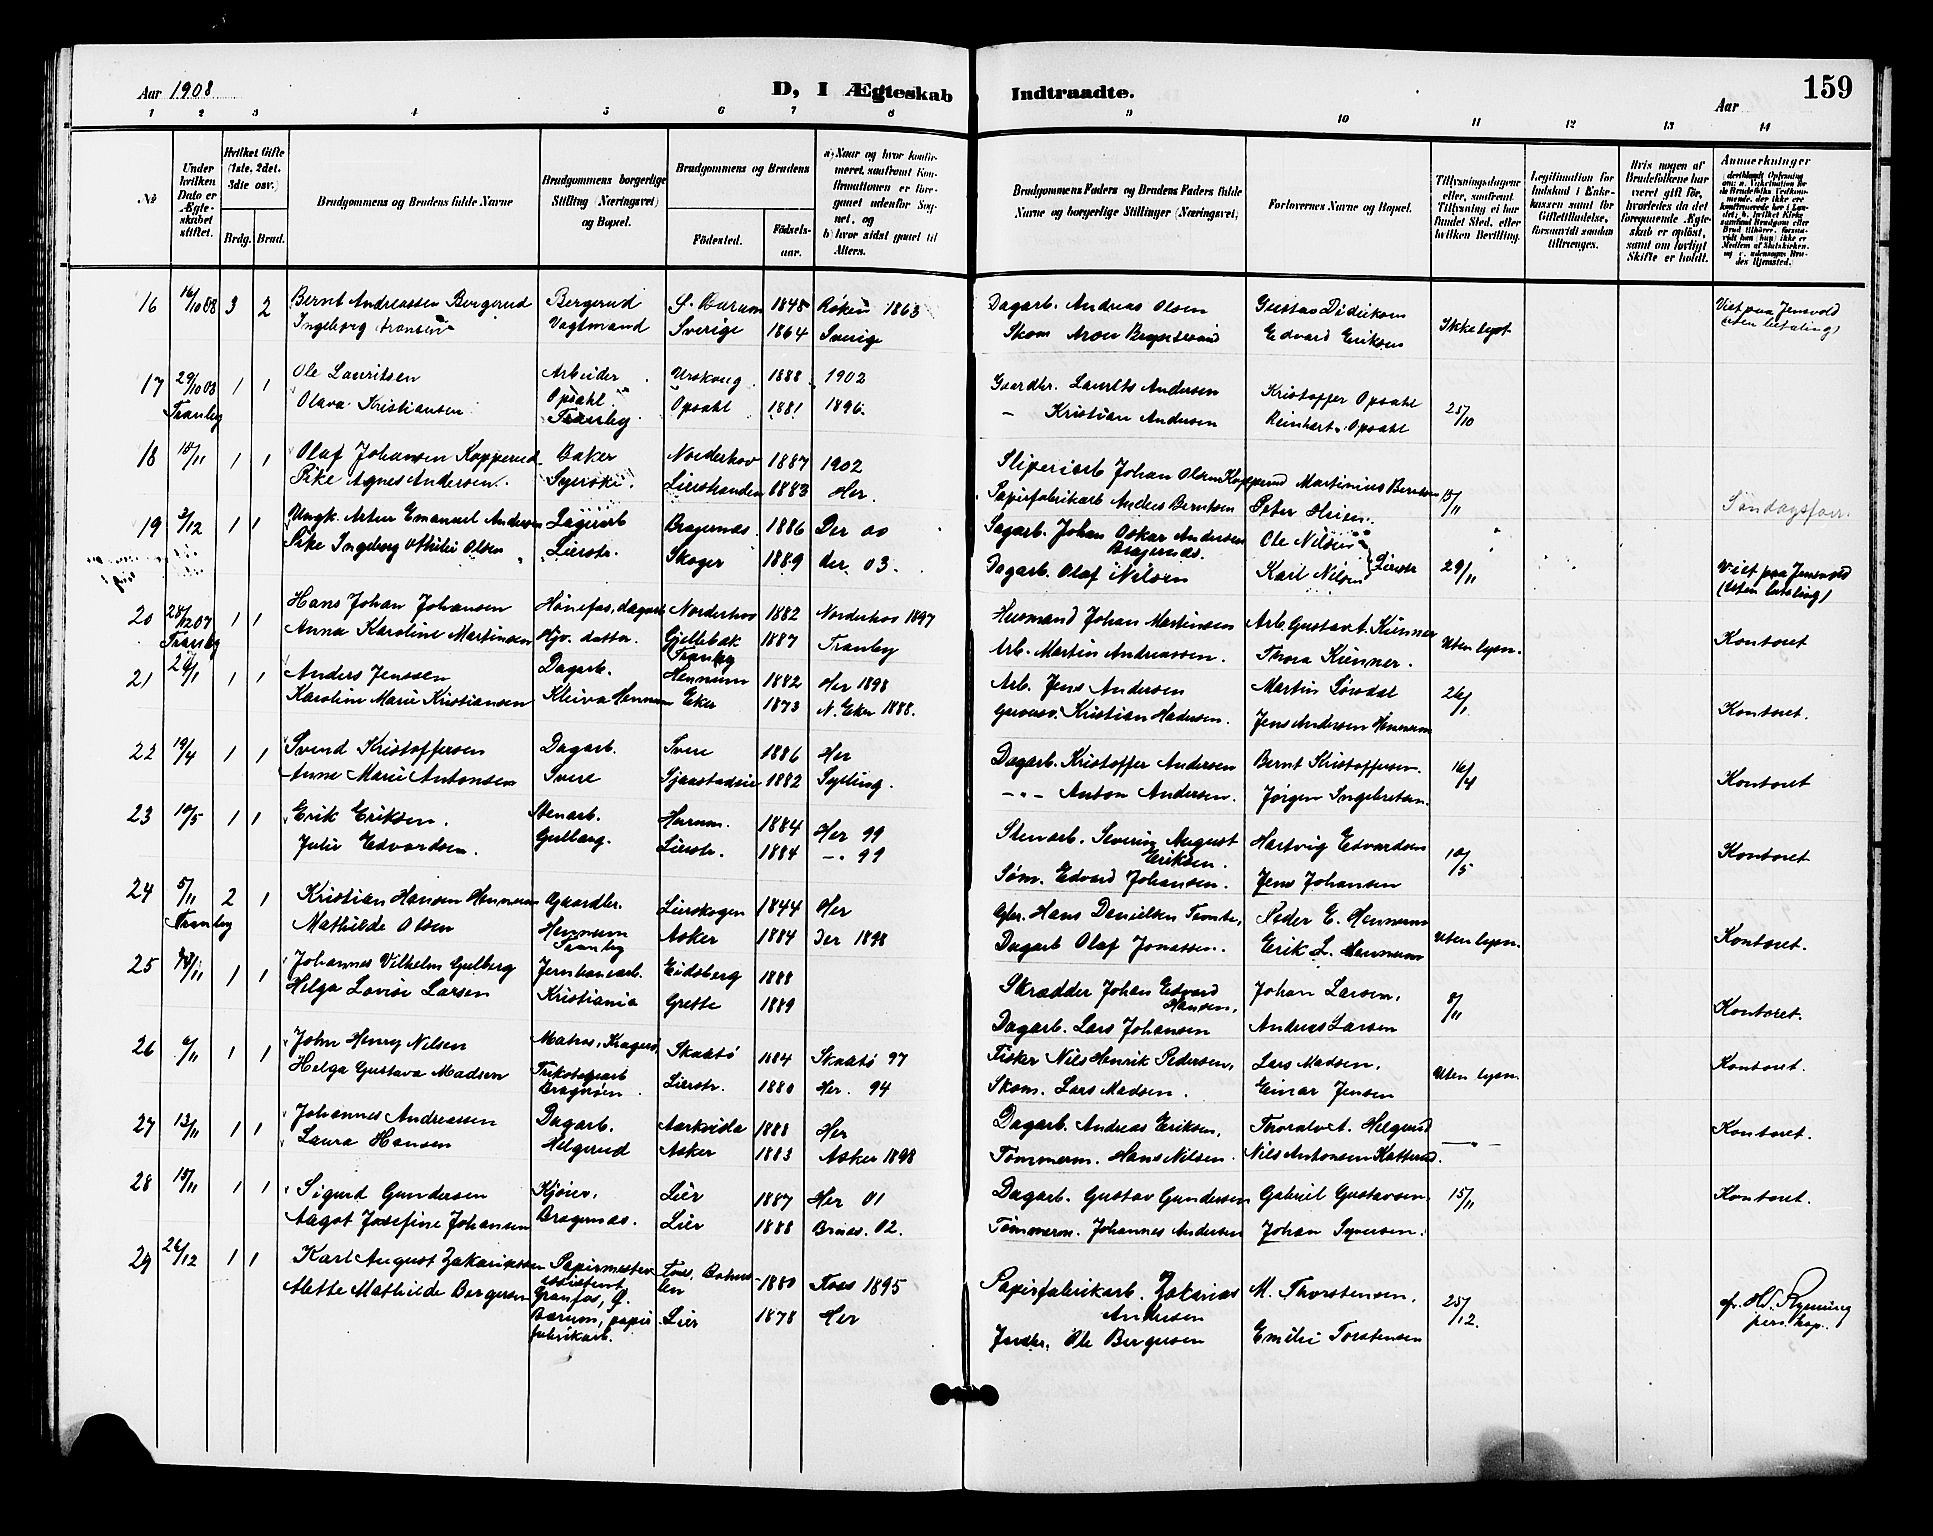 Aar 1908
D, I Ægteskab Indtraadte.
Aar
159
1 2 3 4 5 6 7 8 9 10 11 12 13 14
No
Under hvilken Dato er Ægteskabet stiftet.
Hvilket Gifte (1ste, 2det, 3die osv.)
Brdg. Brud.
Brudgommens og Brudens fulde Navne
Brudgommens borgerlige Stilling (Næringsvei) og Bopæl.
Brudgommens og Brudens
Födested.
Födsels-aar.
a) Naar og hvor konfirmeret, saafremt Konfirmationen er foregaaet udenfor Sognet, og
b) hvor sidst gaaet til Alters.
Brudgommens Faders og Brudens Faders fulde Navne og borgerlige Stillinger (Næringsvei)
Forlovernes Navne og Bopæl.
Tillysningsdagene eller, saafremt Tillysning ei har fundet Sted, efter hvilken Bevilling.
Legitimation for Indskud i Enkekassen samt for Giftetilladelse, forsaavidt saadan tiltrænges.
Hvis nogen af Brudefolkene har været gift för, hvorledes da det foregaaende Ægteskab er oplöst, samt om lovligt Skifte er holdt.
Anmerkninger
16 16/10 08 3 2 Bernt Andreassen Bergerud Bergerud 1848 Røken 1863 Dagarb. Andreas Olsen Gustav Didriksen Viet paa Jensvold
Ingeborg Fransen Vagtmand Sverige 1864 Sverige Skom Edvard Eriksen Ikke lyst (uten betaling)
17 29/10 08 1 1 Ole Lauritsen Arbeider Urskoug 1888 1902 Gaardbr. Laurits Andersen Kristoffer Opsahl
Tranby Olava Kristiansen Opsahl Tranby Opsahl 1881 1896. – Kristian Andersen Reinhart Opsahl 25/10
18 15/11 1 1 Olaf Johansen Kopperud Baker Norderhov 1887 1902 Sliperiarb Johan Olsen Kopperud Martinius Berntsen
Pike Agnes Andersen. Syerske. Lierstranden 1883 Her. Papirfabrikarb Anders Berntsen Peter 15/11
19 3/12 1 1 Ungk. Artur Emanuel Andersen Lagerarb Bragernæs 1886 Der 00 Sagarb. Johan Oskar Andersen Bragernæs. Ole Nilsen Søndagsforr.
Pike Ingeborg Othilie Olsen Lierstr. Skoger 1889 der. 03. Dagarb. Olaf Nilsen Karl Nilsen Lierstr 29/11 Viet paa Jensvold (uten betaling)
20 28/12 07 1 1 Hans Johan Johansen Hönefos, dagarb Norderhov 1882 Norderhov 1897 Husmand Johan Martinsen Arb. Gustav A. Kinner
Tranby Anna Karoline Martinsen Hjv. datter Gjellebæk Tranby 1887 Tranby Arb. Martin Andreassen. Thora Kinner. Uten lysn. Kontoret
21 26/1 1 1 Anders Jenssen Dagarb. Hennum 1882 Her 1898 Arb. Jens Andersen Martin Sørsdal 26/1
Karoline Marie Kristiansen Kleiva Hennum Eker 1873 N. Eker 1888. Kristian Hadersen. Jens Andersen Hennum Kontoret.
22 19/4 1 1 Svend Kristoffersen Dagarb. Svere 1886 Her Dagarb. Kristoffer Andersen Bernt Kristoffersen. 16/4
Anne Marie Antonsen Svere 1882 Sylling. –"– Anton Andersen. Jørgen Ingebretsen. Kontoret
23 10/5 1 1 Erik Eriksen. Stenarb. 1884 Her 99 Stenarb. Severin August Eriksen. Hartvig Edvardsen
Julie Edvardsen. Gulbarg. Lierstr. 1884 –" 99 Søm. Edvard Johansen. Jens Johansen 10/5 Kontoret
24 5/11 2 1 Kristian Hansen Hennum Gaardbr. Lierskogen 1844 Her Gbr. Hans Danielsen Peder E. Hennum
Tranby Mathilde Olsen Hennum Tranby Asker 1884 Der 1898 Dagarb Olaf Jonassen. Erik L. Hennum Uten lysn. Kontoret.
25 1 1 Johannes Vilhelm Gulberg Jernbanearb. Eidsberg 1888 Skrædder Johan Edvard Hansen. Johan Larsen, 8/11
Helga Lovise Larsen Kristiania Grette 1889 Dagarb. Lars Johansen Andreas Larsen Kontoret.
26 6/11 1 1 John Henry Nilsen Matros, Kragerø, Skaatø 1884 Skaatø 97 Fisker Nils Henrik Pedersen, Lars Madsen,
Helga Gustava Madsen Trikotagearb Bragerøen. Lierstr. 1880 Her. 94 Skom. Lars Madsen. Einar Jensen Uten lysn. Kontoret.
27 13/11 1 1 Johannes Andreassen Dagarb. 1888 Her Dagarb. Andreas Eriksen, Thoralv A. Helgerud
Laura Hansen Helgerud Asker 1883 Asker 1898 Tømmerm. Hans Nilsen. Nils Antonsen Katterud. –"– Kontoret.
28 15/11 1 1 Sigurd Gundersen Lier 1887 Her 01 Dagarb. Gustav Gundersen Gabriel Gustavsen 15/11 Kontoret.
Aagot Josefine Johansen Bragernæs. Lier 1888 Brnæs. 02. Tømmerm. Johannes Andersen Johan Syversen.
29 26/12 1 1 Karl August Zakariassen Papirmester assistent Granfos, Ø. Foss, Bohuslen 1880 Foss 1895 Papirfabrikarb. Zakarias Andersen M. Thorstensen,
Alette Mathilde Bergersen Bærum, papirfabrikarb. Lier 1878 Her Jordbr. Ole Bergersen Emilie Torstensen 25/12. pers. kap.